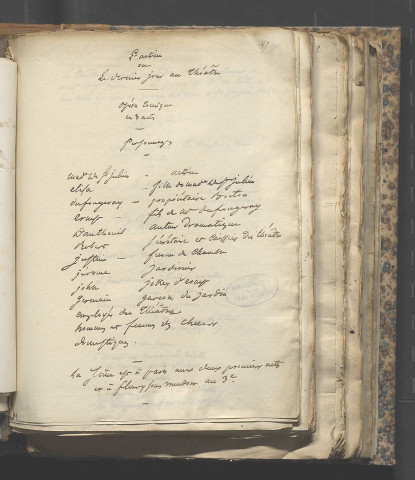 149
L'actrice
ou
Le dernier jour au théâtre
Opéra comique
en 3 actes
Personnages
mad de St Julien - actrice
élisa - fille de mad de St Julien
dufougeray - propriétaire
- fils de mr dufougeray
Dautheuil - auteur dramatique
Robert - secrétaire et caissier du théâtre
justine - femme de chambre
jérome - jardinier
john - jokei
germain - garçon du jardin
employés du théâtre
hommes et femmes des choeurs
domestiques.
La Scène est à paris aux deux premiers actes
et à fleury sous meudon au 3e.